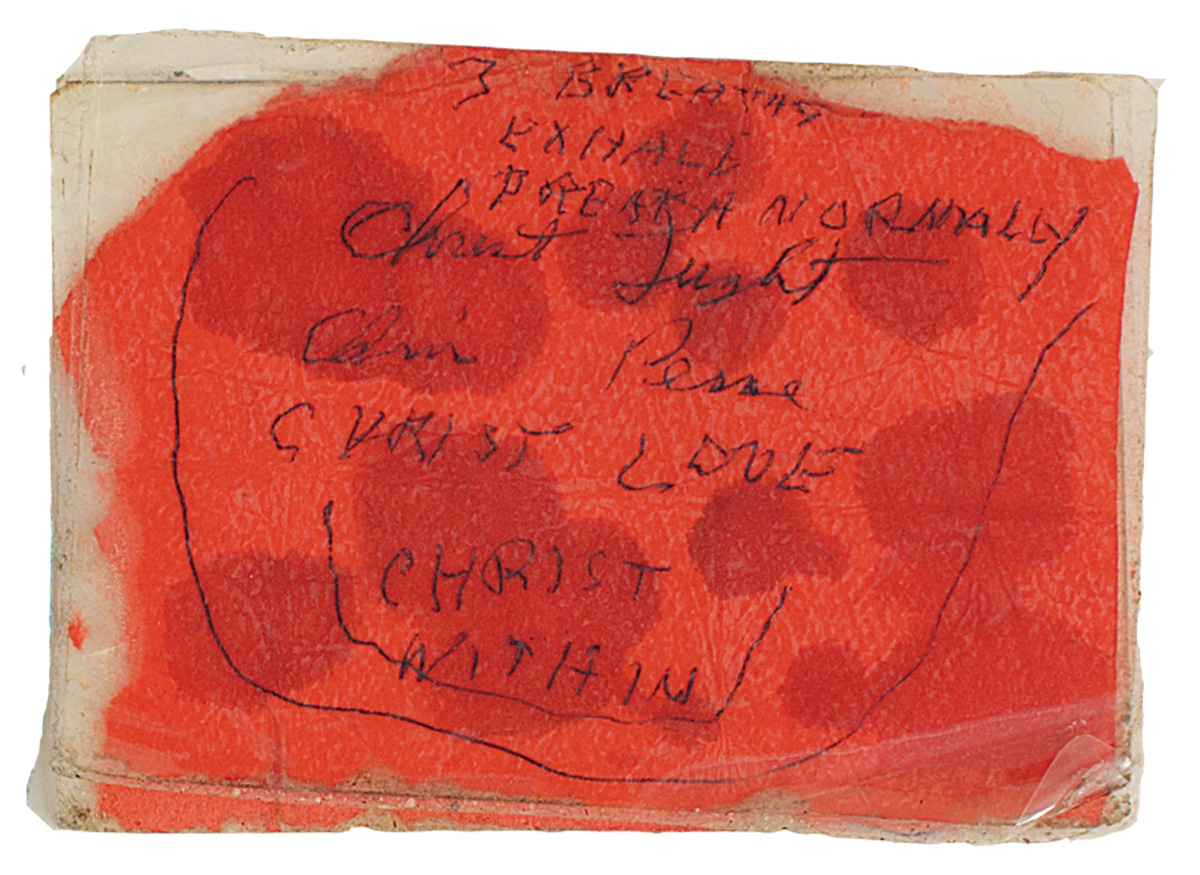 3 BREATHS
EXHALE
BREATH NORMALLY
Christ Light
Chris
CHRIST LOVE
CHRIST
WITHIN